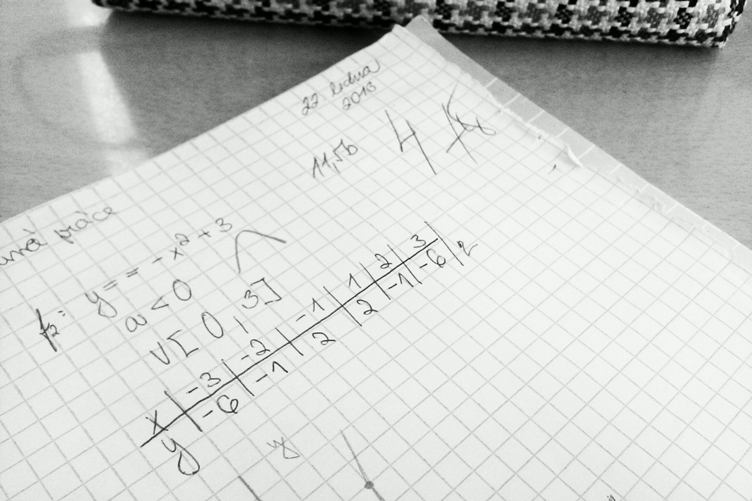 22. ledna
2013
11,5b
4
práce
f₂: y = = -x² + 3
a < 0
V[0, 3]
x | -3 | -2 | -1 | 1 | 2 | 3
y | -6 | -1 | 2 | 2 | -1 | -6 | 2
y